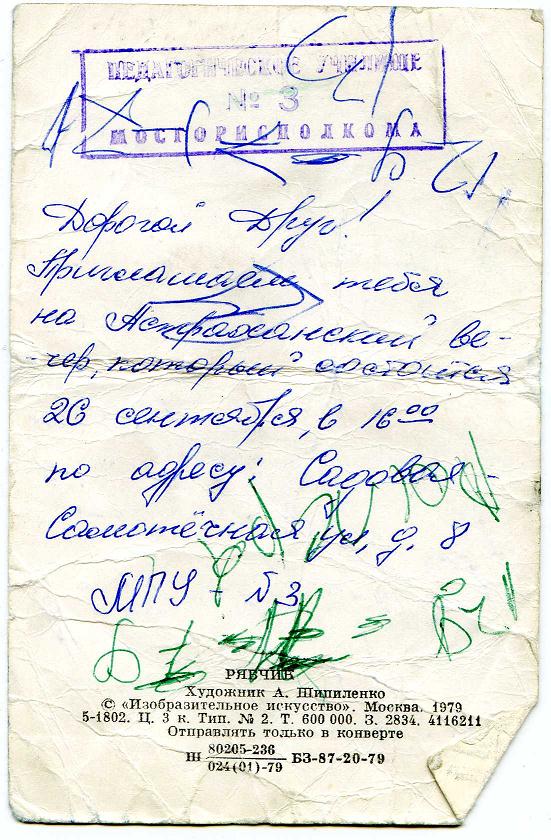 ПЕДАГОГИЧЕСКОЕ УЧИЛИЩЕ
№ 3
МОСГОРИСПОЛКОМА
Дорогой Друг!
Приглашаем тебя
на Астраханский ве-
-чер, который состоится
26 сентября, в 16 00
по адресу: Садовая-
Самотёчная ул, д. 8
МПУ - № 3
РЯБЧИК
Художник А. Шипиленко
© «Изобразительное искусство». Москва. 1979
5-1802. Ц. 3 к. Тип. № 2. Т. 600 000. З. 2834. 4116211
Отправлять только в конверте
Ш 80205-236 БЗ-87-20-79
024(01)-79